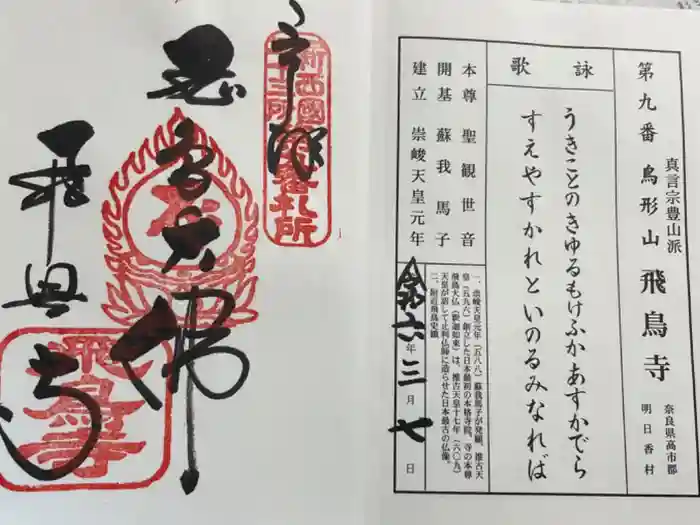 第九番 鳥形山 飛鳥寺
真言宗豊山派
奈良県高市郡
明日香村
詠歌
うきことのきゆるもけふかあすかでら
すえやすかれといのるみなれば
本尊 聖観世音
開基 蘇我馬子
建立 崇峻天皇元年
一、崇峻天皇元年（五八八）蘇我馬子が発願、推古天
皇（五九六）創立した日本最初の本格寺院、寺の本尊
飛鳥大仏（釈迦如来）は、推古天皇十七年（六〇九）
天皇が詔して止利仏師に造らせた日本最古の仏像。
二、附近飛鳥史蹟
令和六年三月七日
奉拝
新西國
三十三所
第九番札所
飛鳥大佛
飛鳥寺